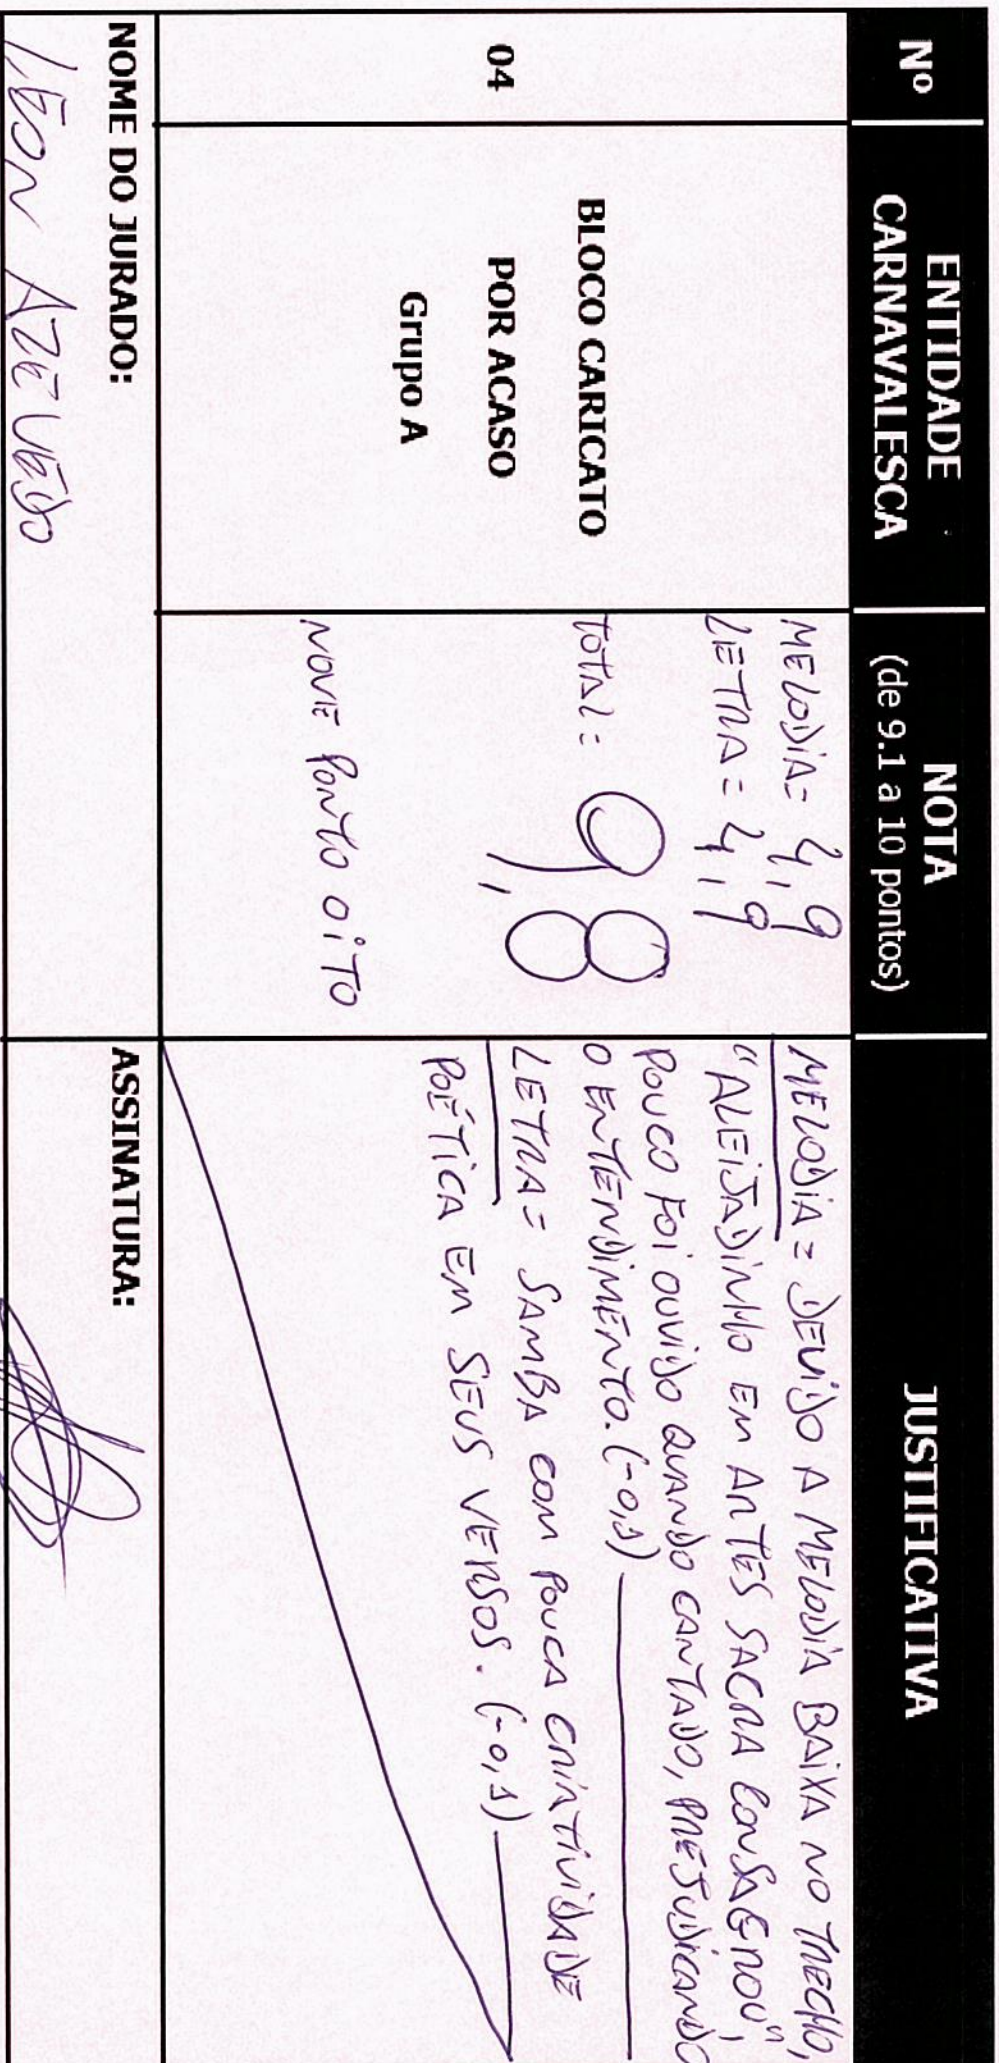 Nº
ENTIDADE
CARNAVALESCA
NOTA
(de 9.1 a 10 pontos)
JUSTIFICATIVA
04
BLOCO CARICATO
POR ACASO
Grupo A
MELODIA= 4,9
LETRA= 4,9
TOTAL= 9,8
NOVE PONTO OITO
MELODIA= DEVIDO A MELODIA BAIXA NO TRECHO,
"ALEIJADINHO EM ARTES SACRA CONSAGROU",
POUCO FOI OUVIDO QUANDO CANTADO, PREJUDICANDO
O ENTENDIMENTO. (-0,1)
LETRA= SAMBA COM POUCA CRIATIVIDADE
POÉTICA EM SEUS VERSOS. (-0,1)
NOME DO JURADO:
LÉON AZEVEDO
ASSINATURA: